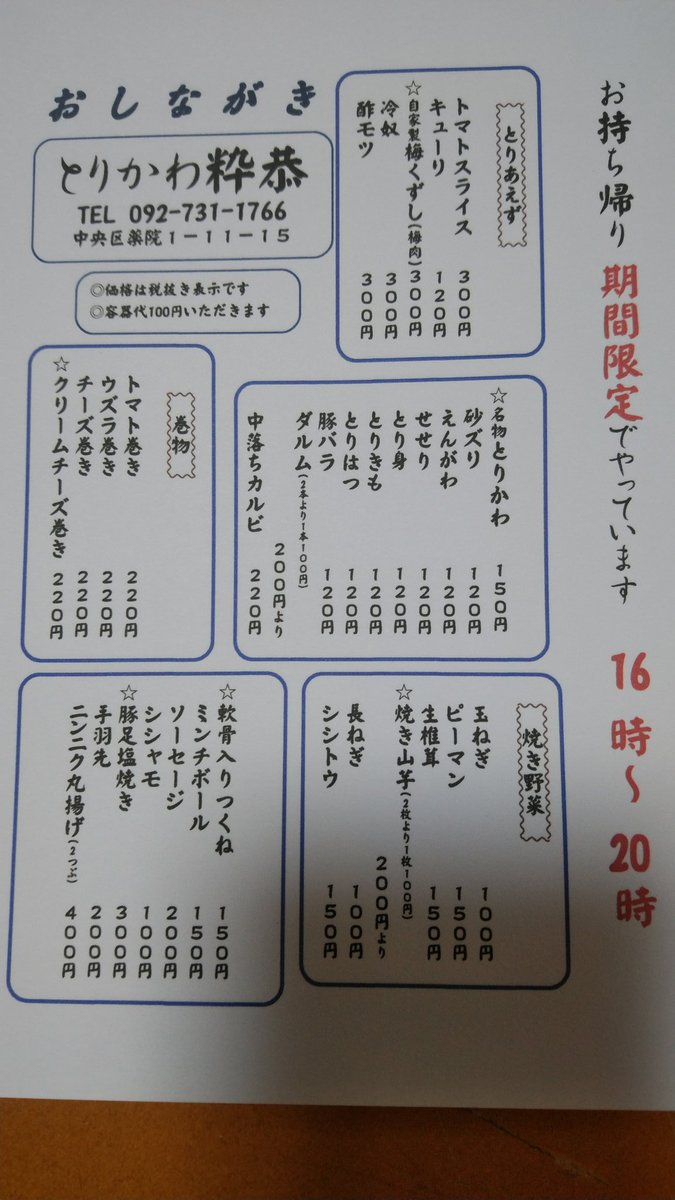 お持ち帰り 期間限定でやっています 16時〜20時
おしながき
とりかわ粋恭
TEL 092-731-1766
中央区薬院1-11-15
◎価格は税抜き表示です
◎容器代100円いただきます
とりあえず
トマトスライス 300円
キューリ 120円
☆自家製梅くずし(梅肉) 300円
冷奴 300円
酢モツ 300円
☆名物とりかわ 150円
砂ズリ 120円
えんがわ 120円
せせり 120円
とり身 120円
とりきも 120円
とりはつ 120円
豚バラ 120円
ダルム(2本より1本100円) 200円より
中落ちカルビ 220円
巻物
トマト巻き 220円
ウズラ巻き 220円
チーズ巻き 220円
☆クリームチーズ巻き 220円
焼き野菜
玉ねぎ 100円
ピーマン 150円
生椎茸 150円
☆焼き山芋(2枚より1枚100円) 200円より
長ねぎ 100円
シシトウ 150円
☆軟骨入りつくね 150円
ミンチボール 150円
ソーセージ 200円
シシャモ 100円
☆豚足塩焼き 300円
手羽先 200円
ニンニク丸揚げ(2つぶ) 400円